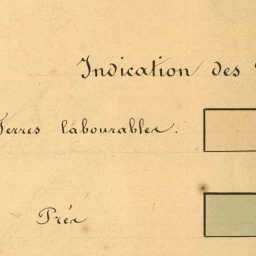 Indication des
Terres labourables.
Prés